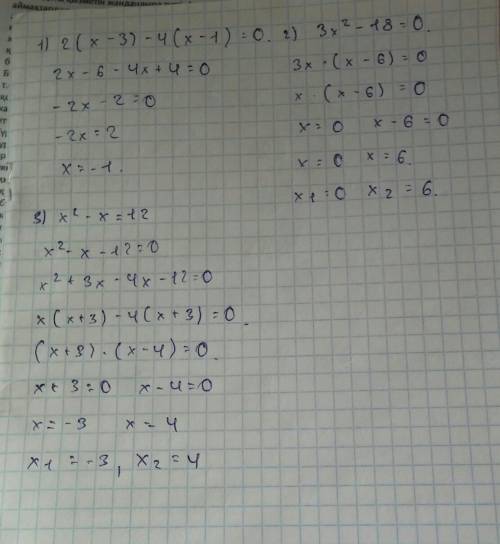 1) 2(x-3)-4(x-1)=0.
2x-6-4x+4=0
-2x-2=0
-2x=2
x=-1.
2) 3x²-18=0.
3x·(x-6)=0
x·(x-6)=0
x=0 x-6=0
x=0 x=6.
x1=0 x2=6.
3) x²-x=12
x²-x-12=0
x²+3x-4x-12=0
x(x+3)-4(x+3)=0.
(x+3)·(x-4)=0.
x+3=0 x-4=0
x=-3 x=4
x1=-3, x2=4